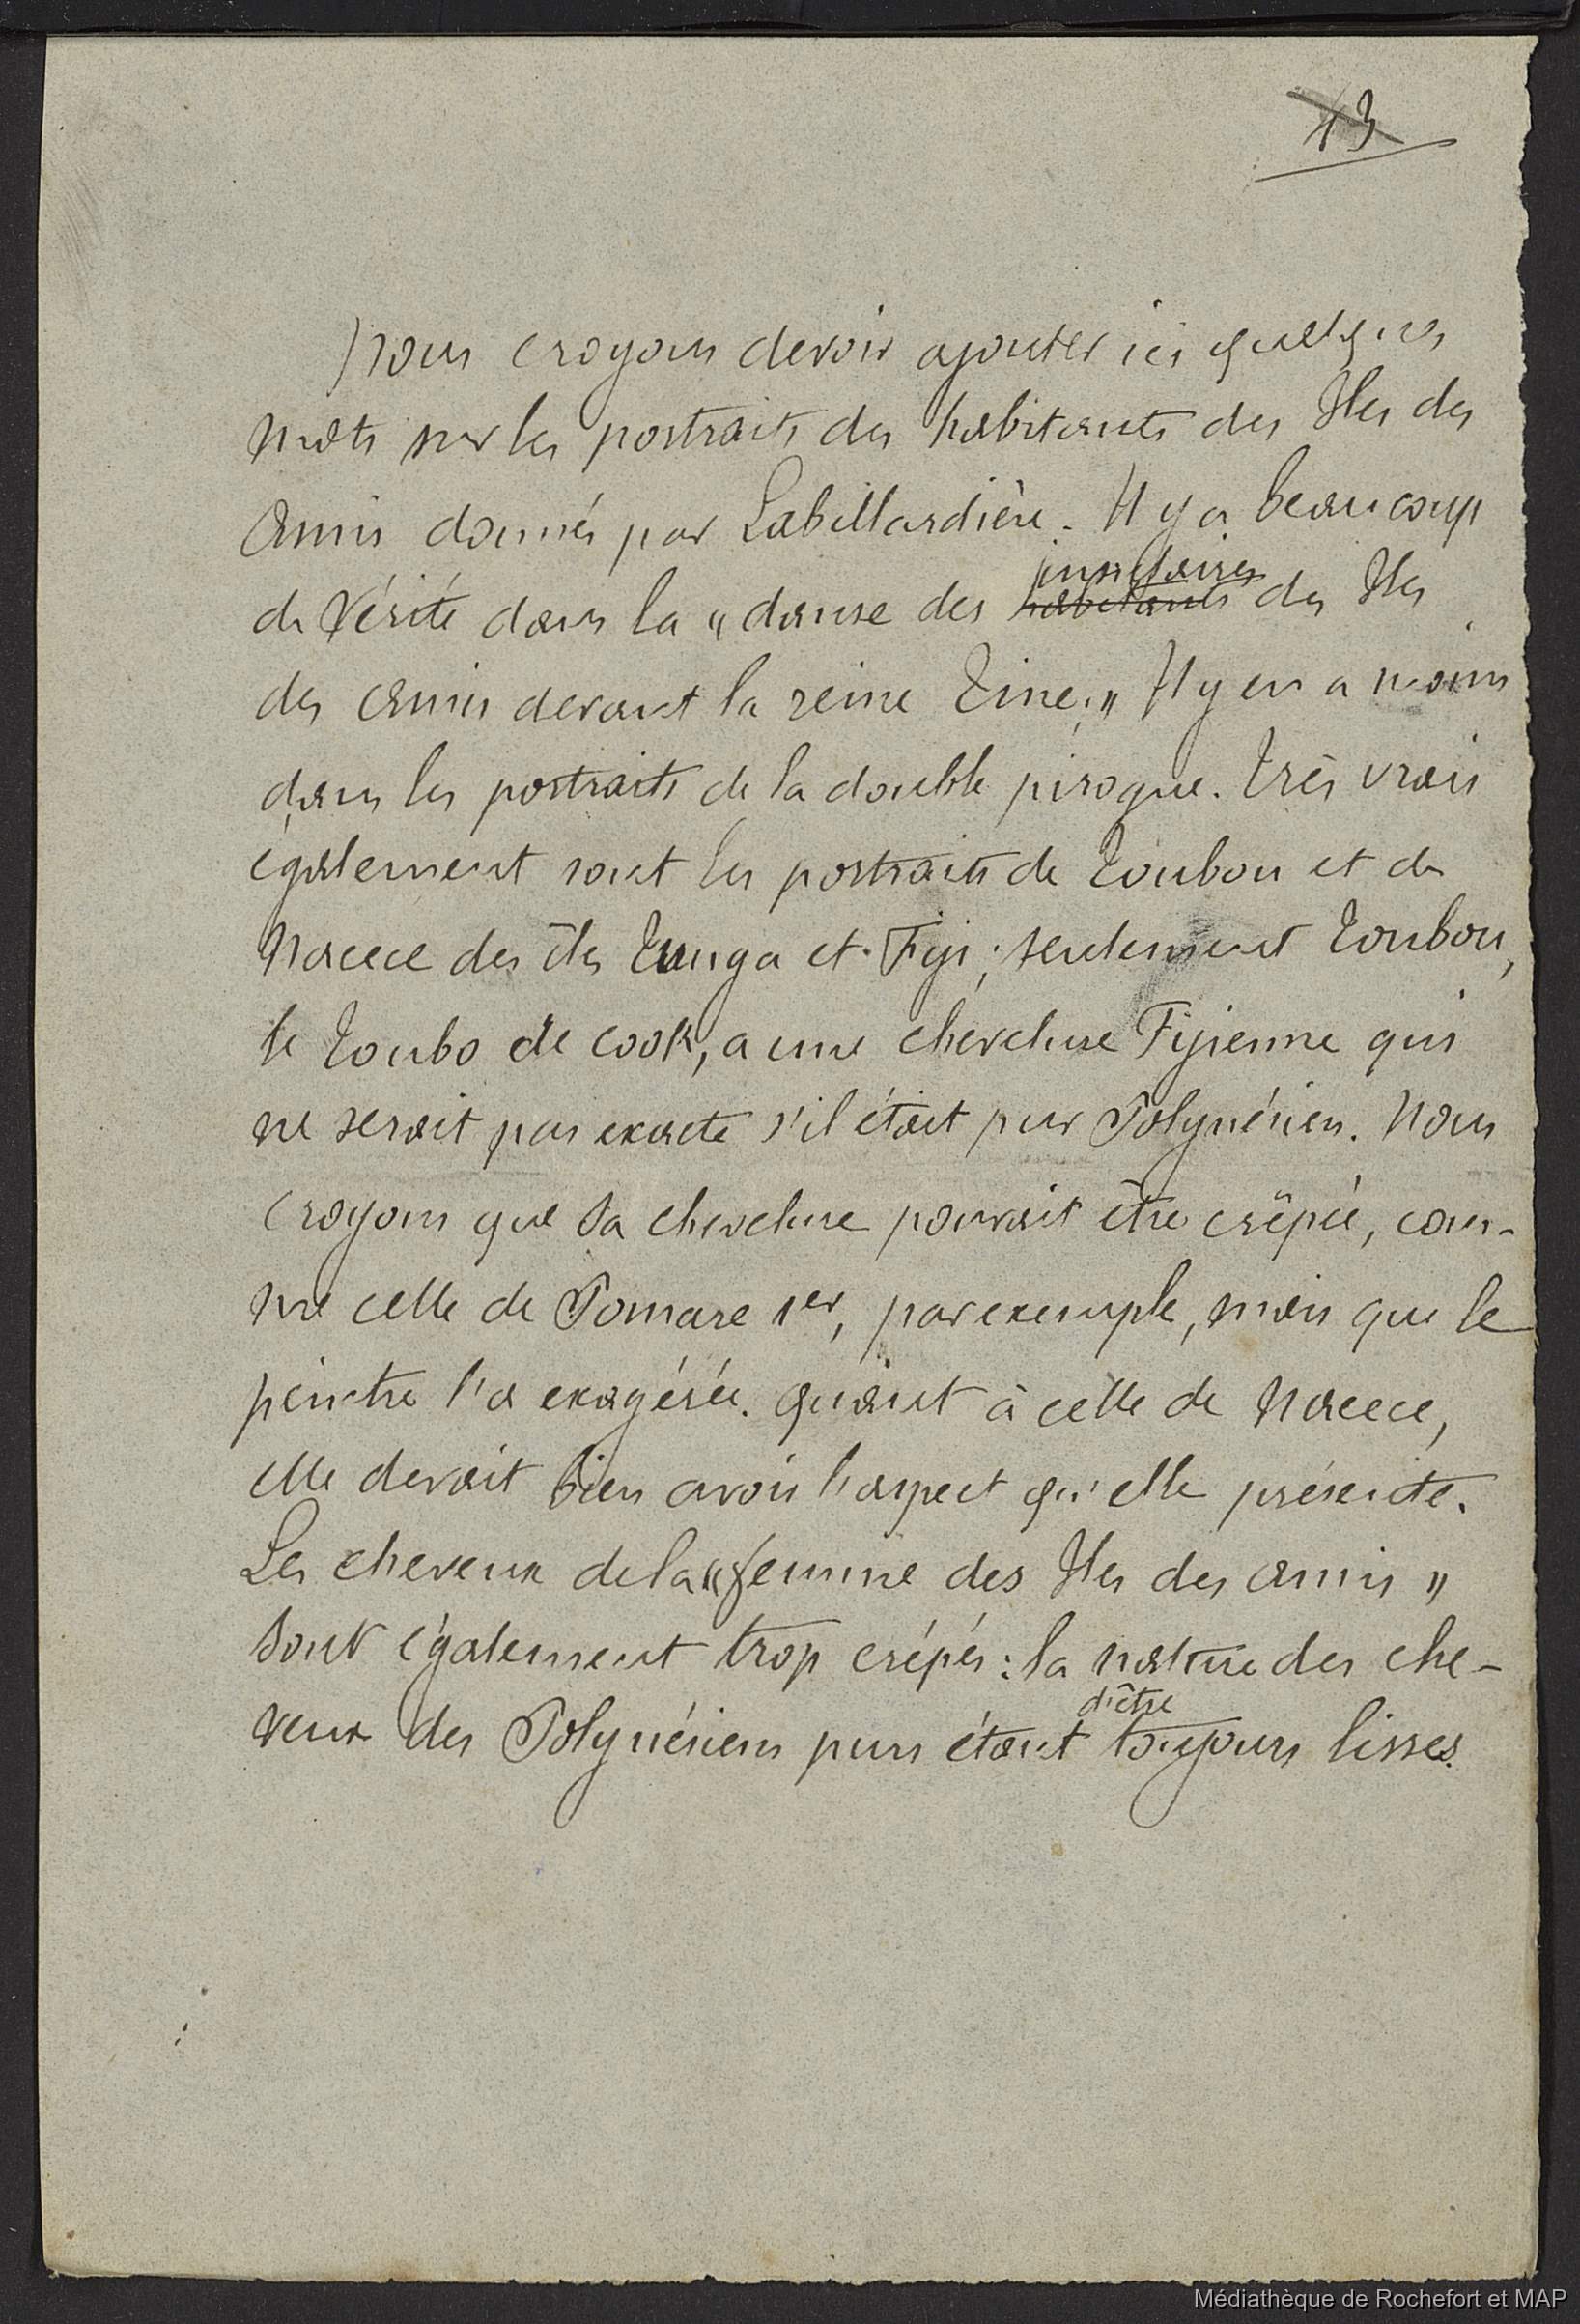 43
Nous croyons devoir ajouter ici quelques
mots sur les portraits des habitants des Iles des
Amis donnés par Labillardière. Il y a beaucoup
insulaires
de vérité dans la "danse des habitants des Iles
des Amis devant la reine Tiné." Il y en a moins
dans les portraits de la double pirogue. Très vrais
également sont les portraits de Toubou et de
Naece des îles Tunga et Fiji; seulement Toubou,
le Toubo de Cook, a une chevelure Fijienne qui
ne serait pas exacte s'il était pur Polynésien. Nous
croyons que sa chevelure pouvait être crêpée, com-
me celle de Pomare 1er, par exemple, mais que le
peintre l'a exagérée. Quant à celle de Naece,
elle devait bien avoir l'aspect qu'elle présente.
Les cheveux de la "femme des Iles des Amis"
sont également trop crépés: la nature des che-
d'être
veux des Polynésiens purs étant toujours lisses.
Médiathèque de Rochefort et MAP